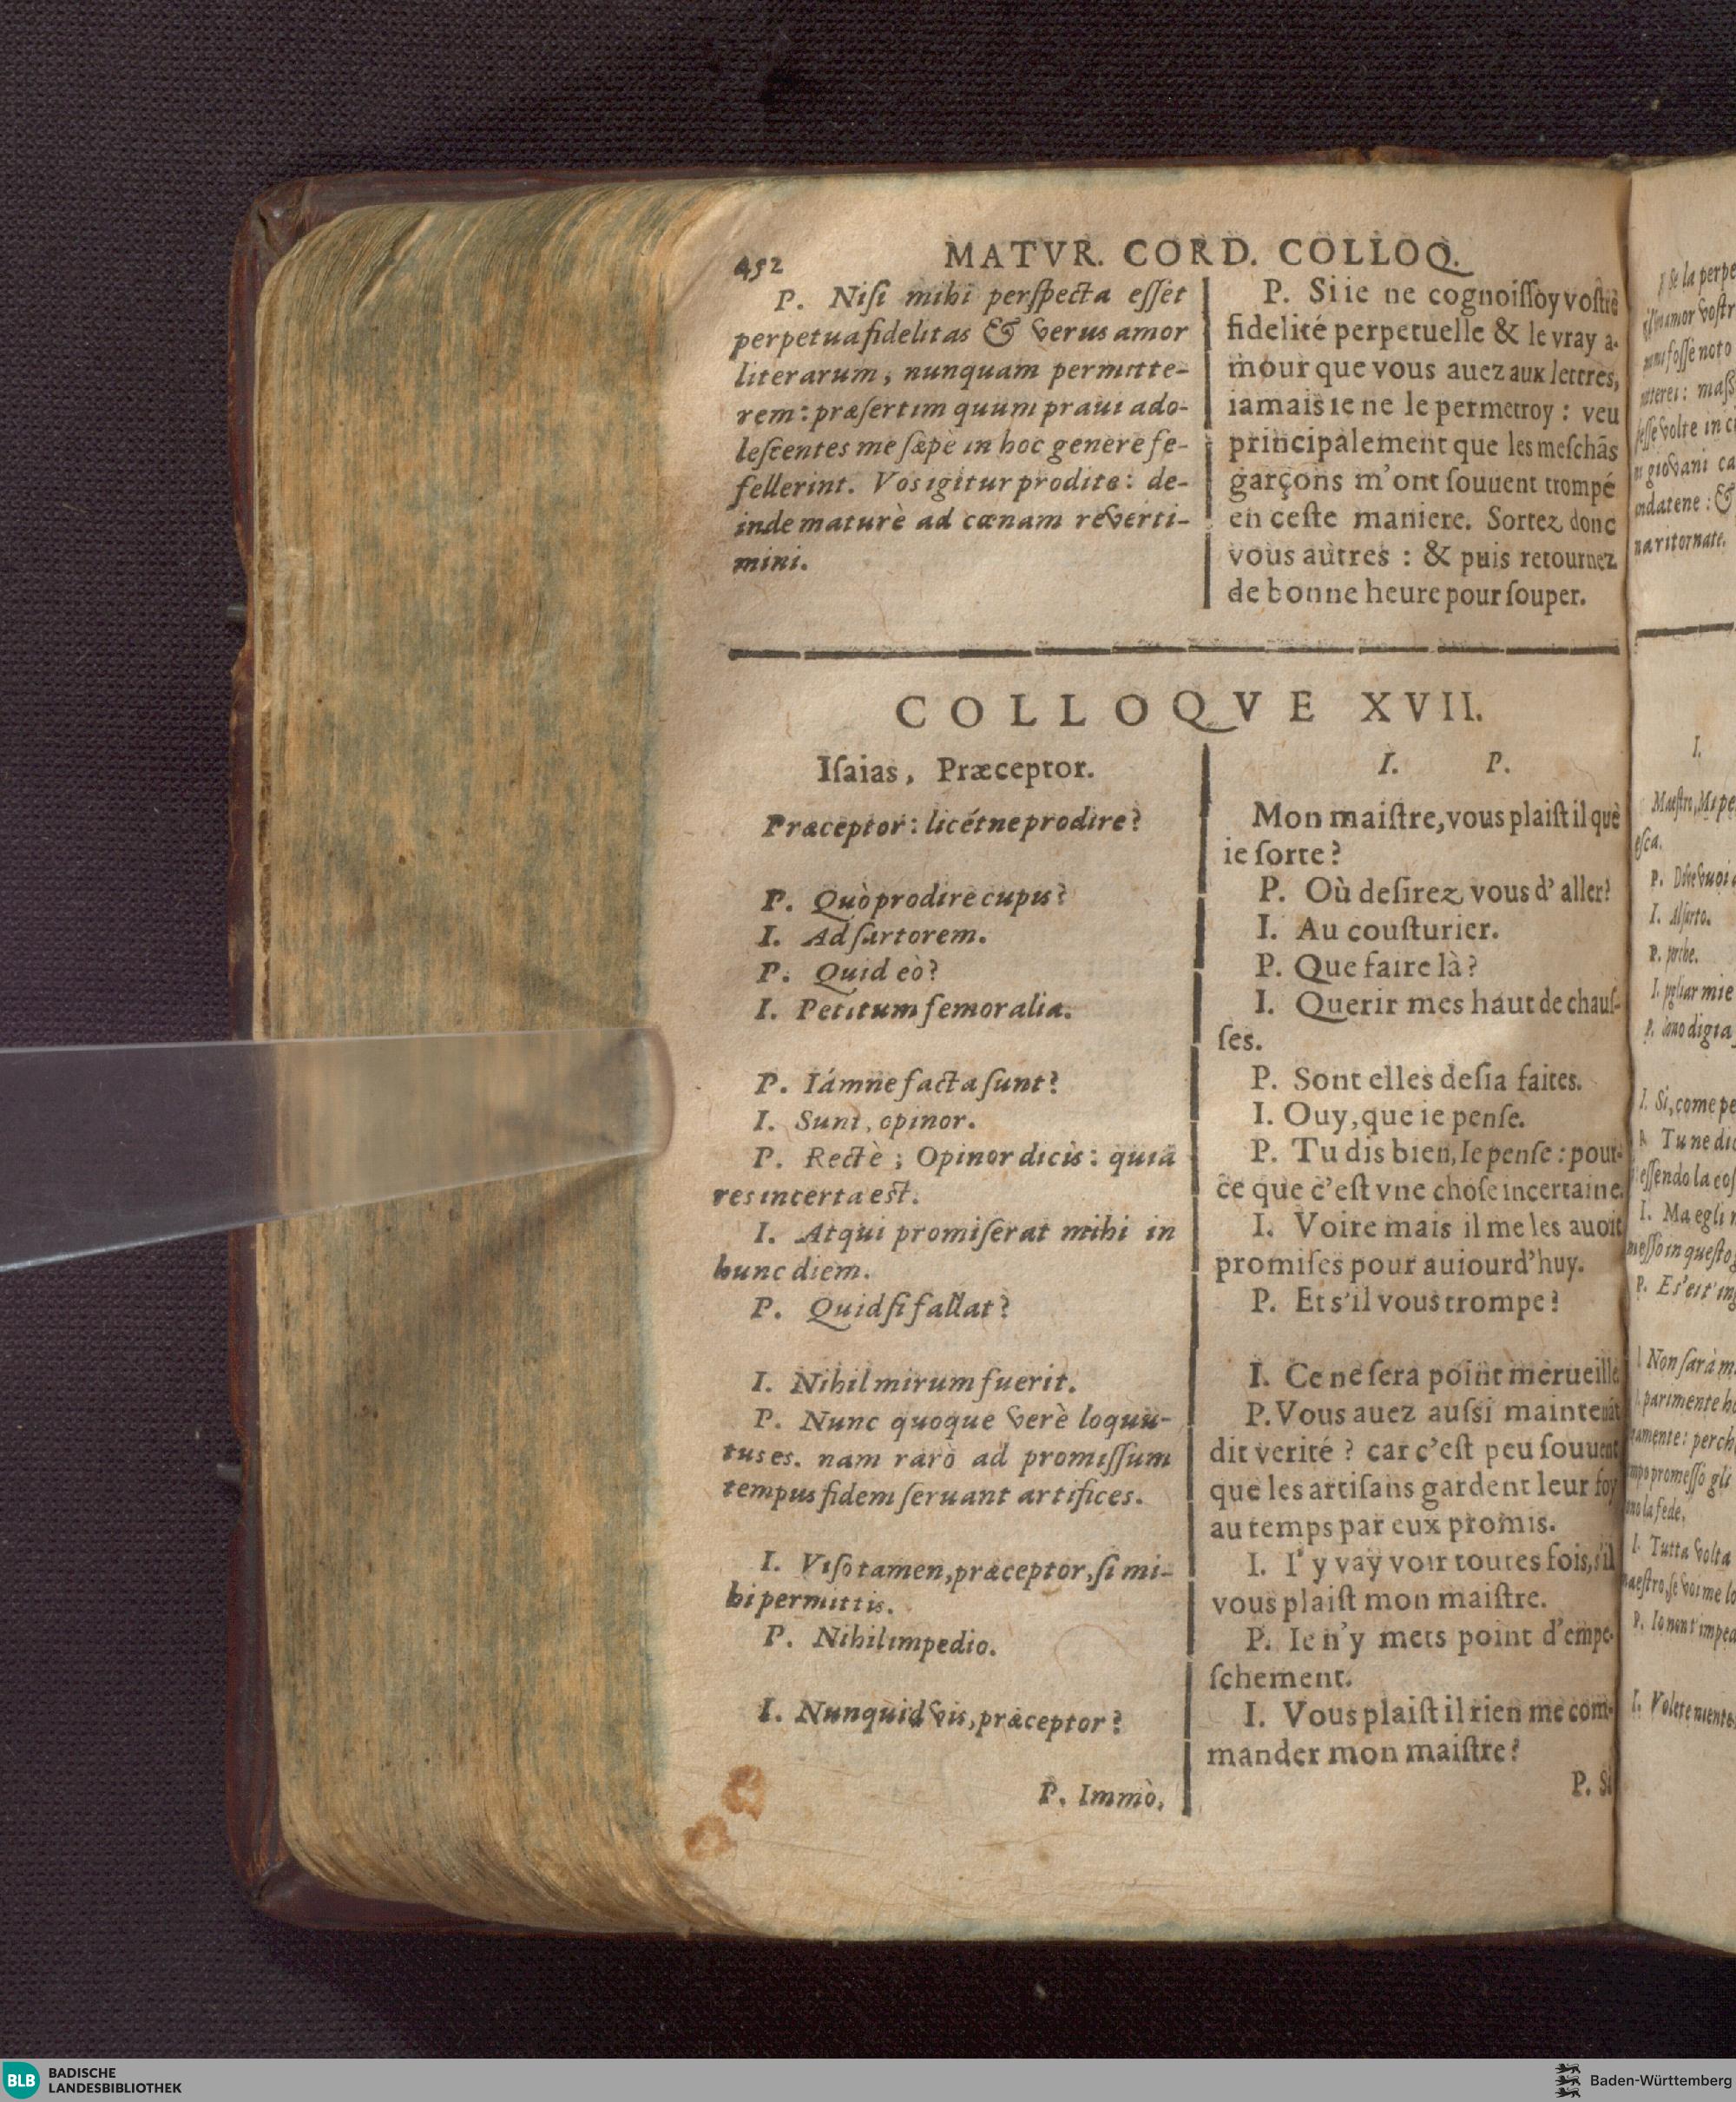 452 MATVR. CORD. COLLOQ.
P. Niſi mihi perſpecta eſſet
perpetua fidelitas & verus amor
literarum, nunquam permitte-
rem: præſertim quum praui ado-
leſcentes me ſæpè in hoc genere fe-
fellerint. Vos igitur prodite: de-
inde maturè ad cœnam reverti-
mini.
P. Si ie ne cognoiſſoy voſtre
fidelité perpetuelle & le vray a-
mour que vous auez aux lettres,
iamais ie ne le permetroy : veu
principalement que les meſchãs
garçons m'ont ſouuent trompé
en ceſte maniere. Sortez donc
vous autres : & puis retournez
de bonne heure pour ſouper.
COLLOQVE XVII.
Iſaias, Præceptor.
Præceptor: licétne prodire?
P. Quò prodire cupis?
I. Ad ſartorem.
P. Quid eò?
I. Petitum femoralia.
P. Iámne facta ſunt?
I. Sunt, opinor.
P. Rectè; Opinor dicis: quia
res incerta est.
I. Atqui promiſerat mihi in
hunc diem.
P. Quid ſi fallat?
I. Nihil mirum fuerit.
P. Nunc quoque verè loquu-
tus es. nam rarò ad promiſſum
tempus fidem ſeruant artifices.
I. Viſo tamen, præceptor, ſi mi-
hi permittis.
P. Nihil impedio.
I. Nunquid vis, præceptor?
P. Immò,
I. P.
Mon maiſtre, vous plaiſt il que
ie ſorte?
P. Où deſirez vous d'aller?
I. Au couſturier.
P. Que faire là?
I. Querir mes haut de chauſ-
ſes.
P. Sont elles deſia faites.
I. Ouy, que ie penſe.
P. Tu dis bien, Ie penſe : pour-
ce que c'eſt vne choſe incertaine.
I. Voire mais il me les auoit
promiſes pour auiourd'huy.
P. Et s'il vous trompe?
I. Ce ne ſera point merueille
P. Vous auez auſsi maintenãt
dit verité ? car c'eſt peu ſouuent
que les artiſans gardent leur foy
au temps par eux promis.
I. I'y vay voir toutes fois, s'il
vous plaiſt mon maiſtre.
P. Ie n'y mets point d'empe-
ſchement.
I. Vous plaiſt il rien me com-
mander mon maiſtre?
P. Si
ſe la perpe
amor voſtr
foſſe noto
maſſ
volte in c
giovani ca
andatene : &
na ritornate.
I.
Maeſtro,
eſca.
P.
I. Al ſarto.
P. perche.
I. pigliar mie
P. ſono digia
I. Si, come pe
P. Tu ne dic
eſſendo la coſ
I. Ma egli
meſſo in queſto
P. E s'
I. Non ſarà m
parimente
perch
promeſſo gli
no la fede.
I. Tutta volta
maeſtro, ſe voi me lo
P. Io non t'imped
I. Volete niente
BLB BADISCHE
LANDESBIBLIOTHEK
Baden-Württemberg